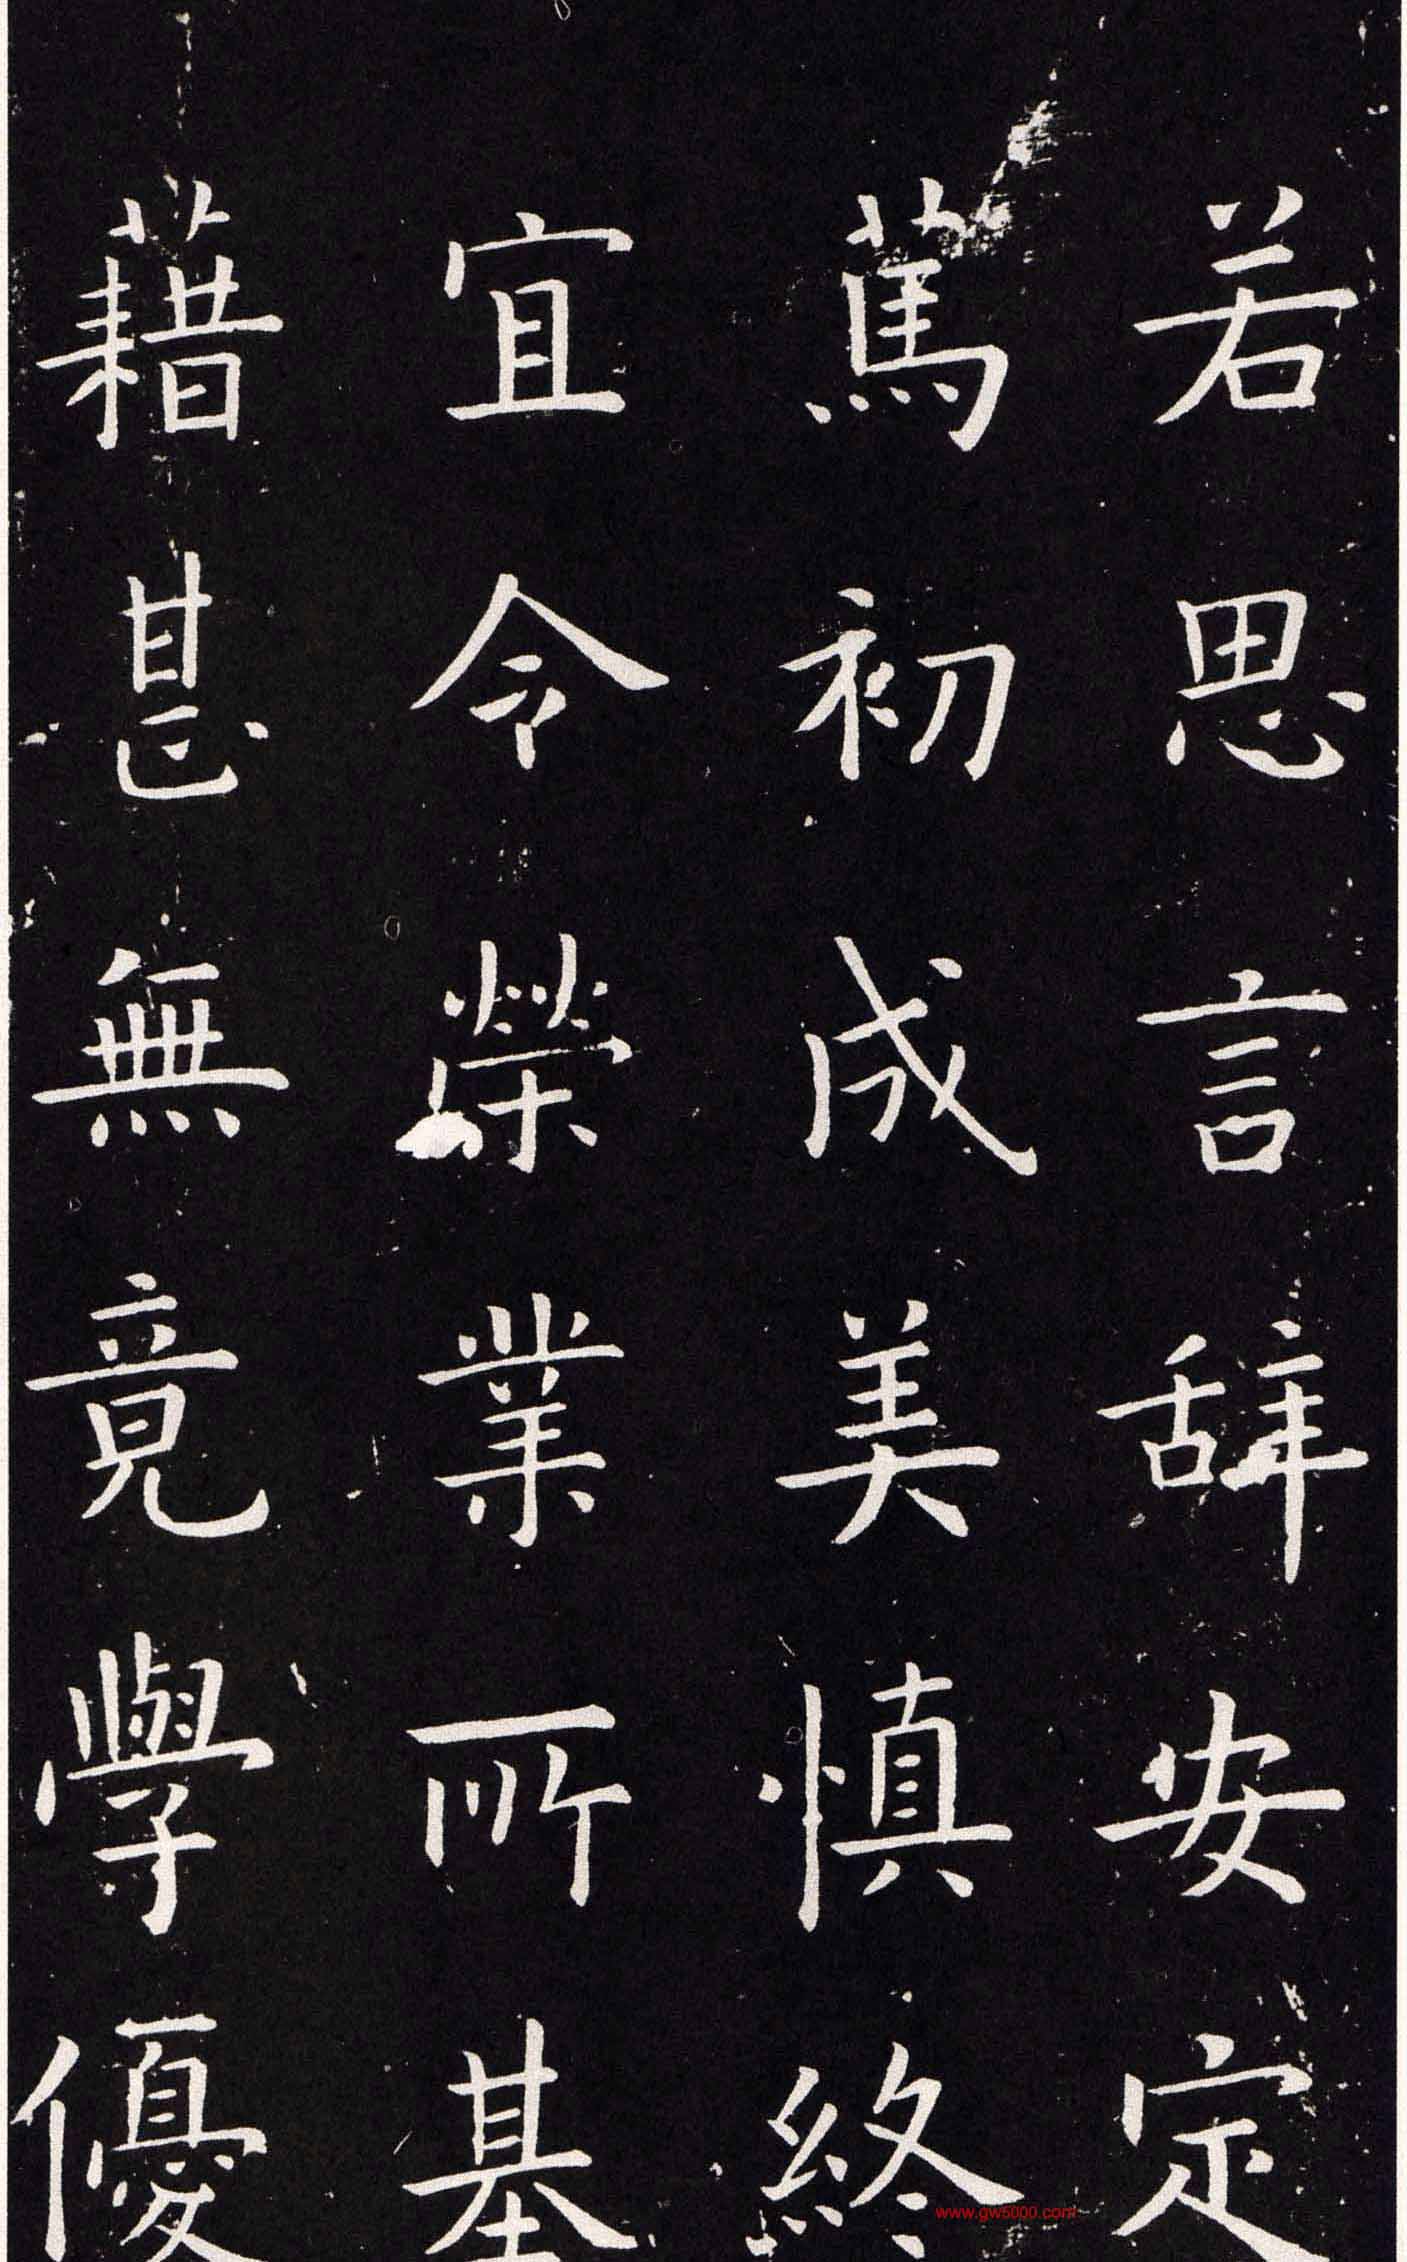 若思言辞安定
篤初成美慎終
宜令榮業所基
藉甚無竟學優
www.gw5000.com